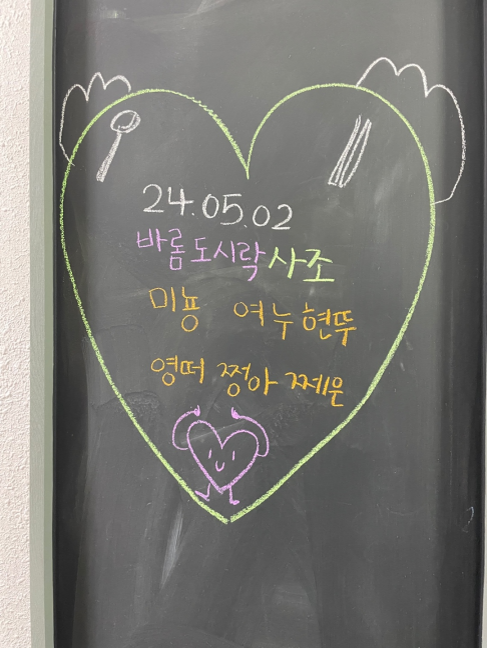 24.05.02
바롬도시락사조
미뇽 여누 현뚜
영떠 쩡아 쩨은